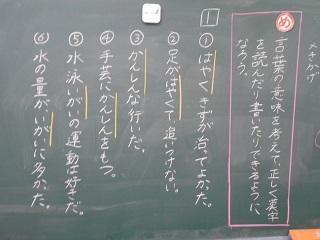 め
言葉の意味を考えて、正しく漢字
を読んだり書いたりできるように
なろう。
1
① はやくきずが治ってよかった。
② 足がはやくて、追いつけない。
③ かんしんな行いだ。
④ 手芸にかんしんをもつ。
⑤ 水泳いがいの運動は好きだ。
⑥ 水の量がいがいに多かった。